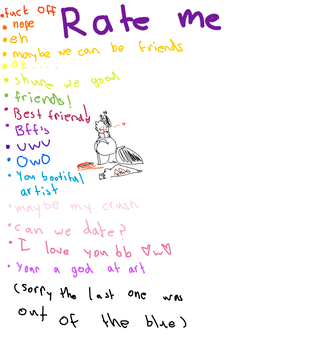 Rate me
•fuck off
• nope
• eh
• maybe we can be friends
• ok....
• shure we good
• friends!
• Best friend!
• Bff's
• UWU
• OwO
• You bootiful
artist
• maybe my crush
• can we date?
• I love you bb ♡w♡
• your a god at art
(sorry the last one was
out of the blue)